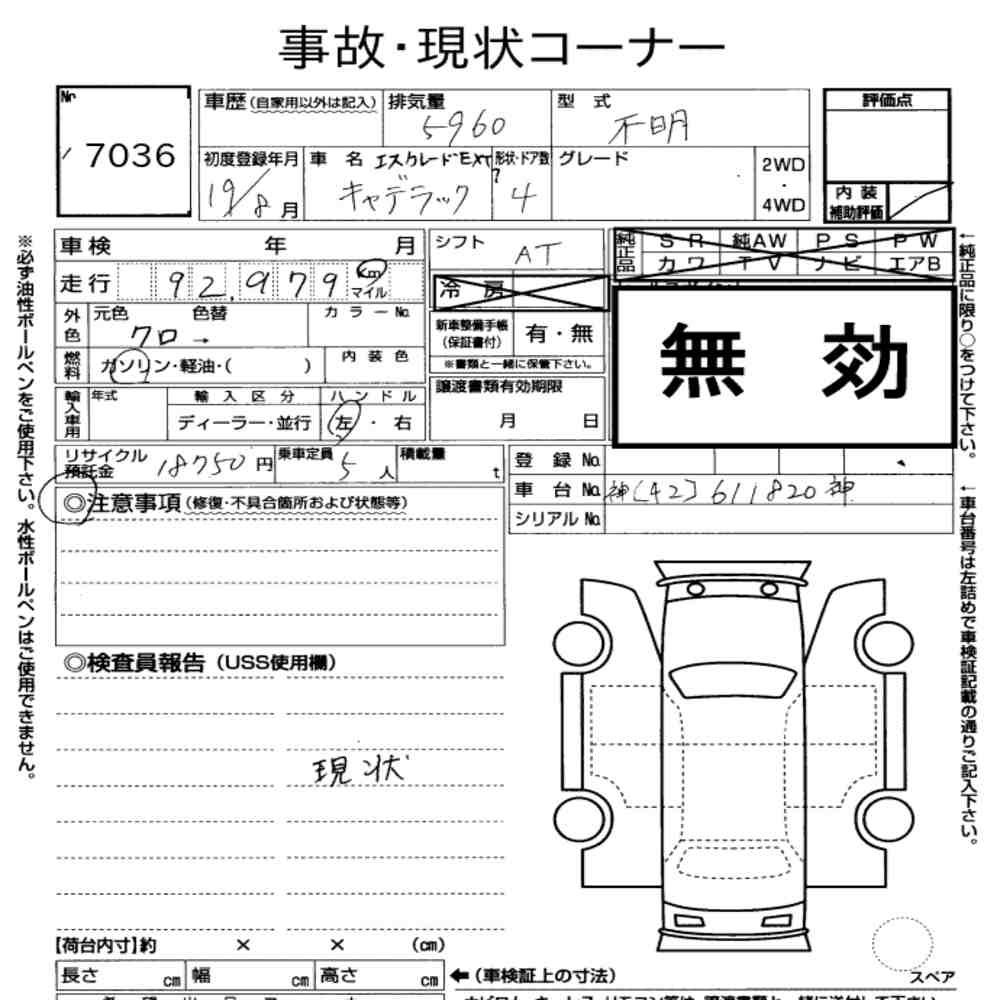 事故・現状コーナー
No.
7036
車歴(自家用以外は記入)
排気量
5960
型式
不明
評価点
初度登録年月
19/8月
車名
エスカレードEXT
キャデラック
形状・ドア数
?
4
グレード
2WD
・
4WD
内装
補助評価
車検 年 月
シフト
AT
純正品
SR 純AW PS PW
カワ TV ナビ エアB
走行 92,979 Km マイル
冷房
外色
元色 色替
クロ →
カラーNo.
新車整備手帳
(保証書付)
有・無
※書類と一緒に保管下さい。
無効
燃料
ガソリン・軽油・( )
内装色
譲渡書類有効期限
月 日
輸入車用
年式
輸入区分
ディーラー・並行
ハンドル
左・右
リサイクル
預託金
18750円
乗車定員
5人
積載量
t
登録No.
車台No. 神(42)611820神
シリアルNo.
◎注意事項(修復・不具合箇所および状態等)
◎検査員報告(USS使用欄)
現状
【荷台内寸】約 × × (cm)
長さ cm 幅 cm 高さ cm
←(車検証上の寸法)
スペア
※必ず油性ボールペンをご使用下さい。水性ボールペンはご使用できません。
←純正品に限り○をつけて下さい。
←車台番号は左詰めで車検証記載の通りご記入下さい。